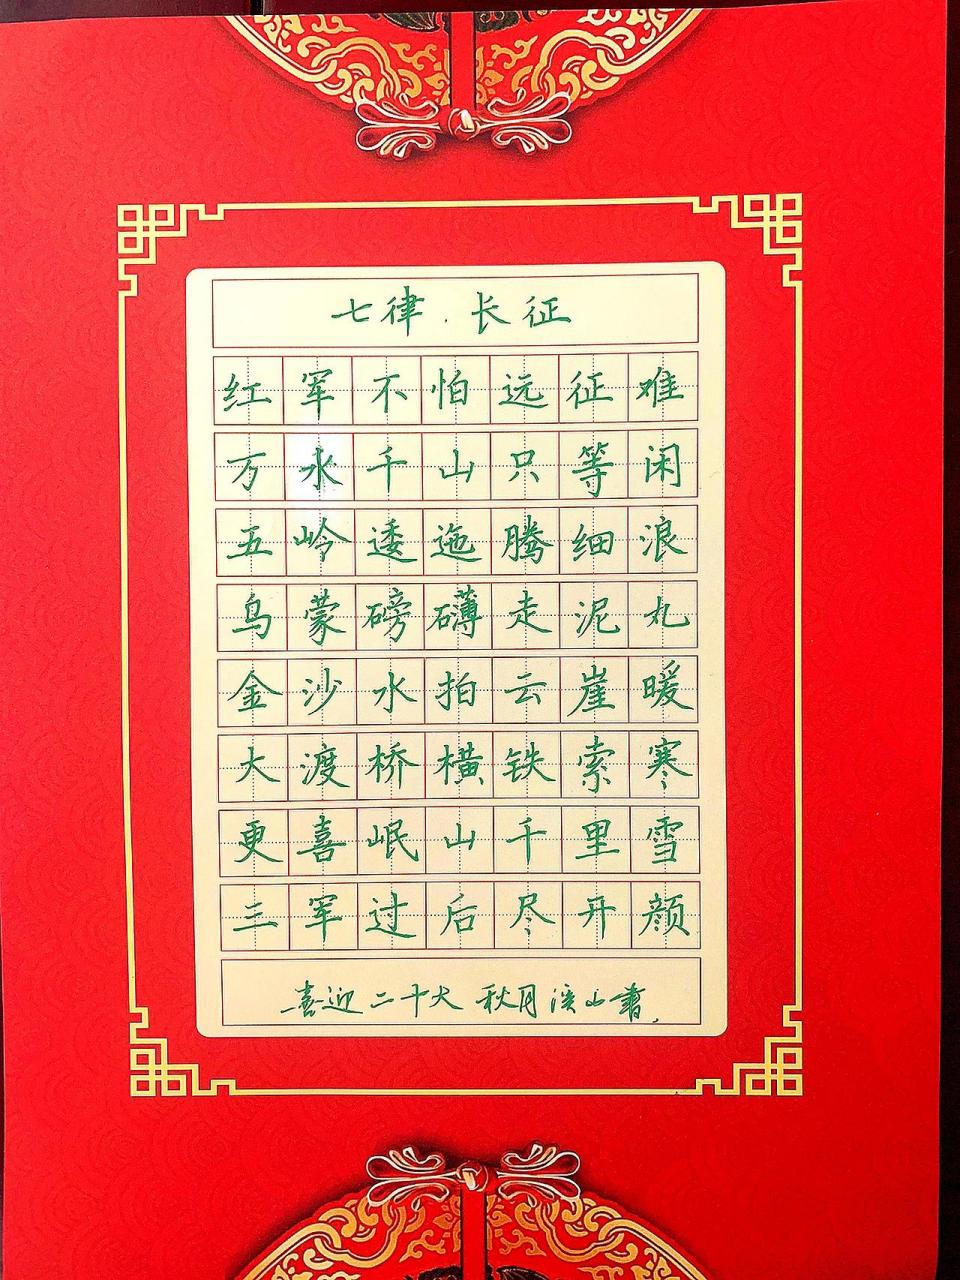 七律.长征
红军不怕远征难
万水千山只等闲
五岭逶迤腾细浪
乌蒙磅礴走泥丸
金沙水拍云崖暖
大渡桥横铁索寒
更喜岷山千里雪
三军过后尽开颜
喜迎二十大 秋月溪山书